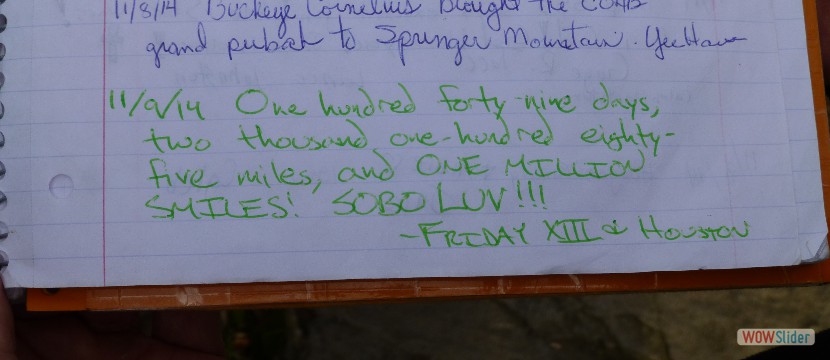 11/8/14 Buckeye Cornelius brought the
grand pubah to Springer Mountain. YeeHaw
11/9/14 One hundred forty-nine days,
two thousand one-hundred eighty-
five miles, and ONE MILLION
SMILES! SOBO LUV!!!
-FRIDAY XIII & HOUSTON
WOWSlider